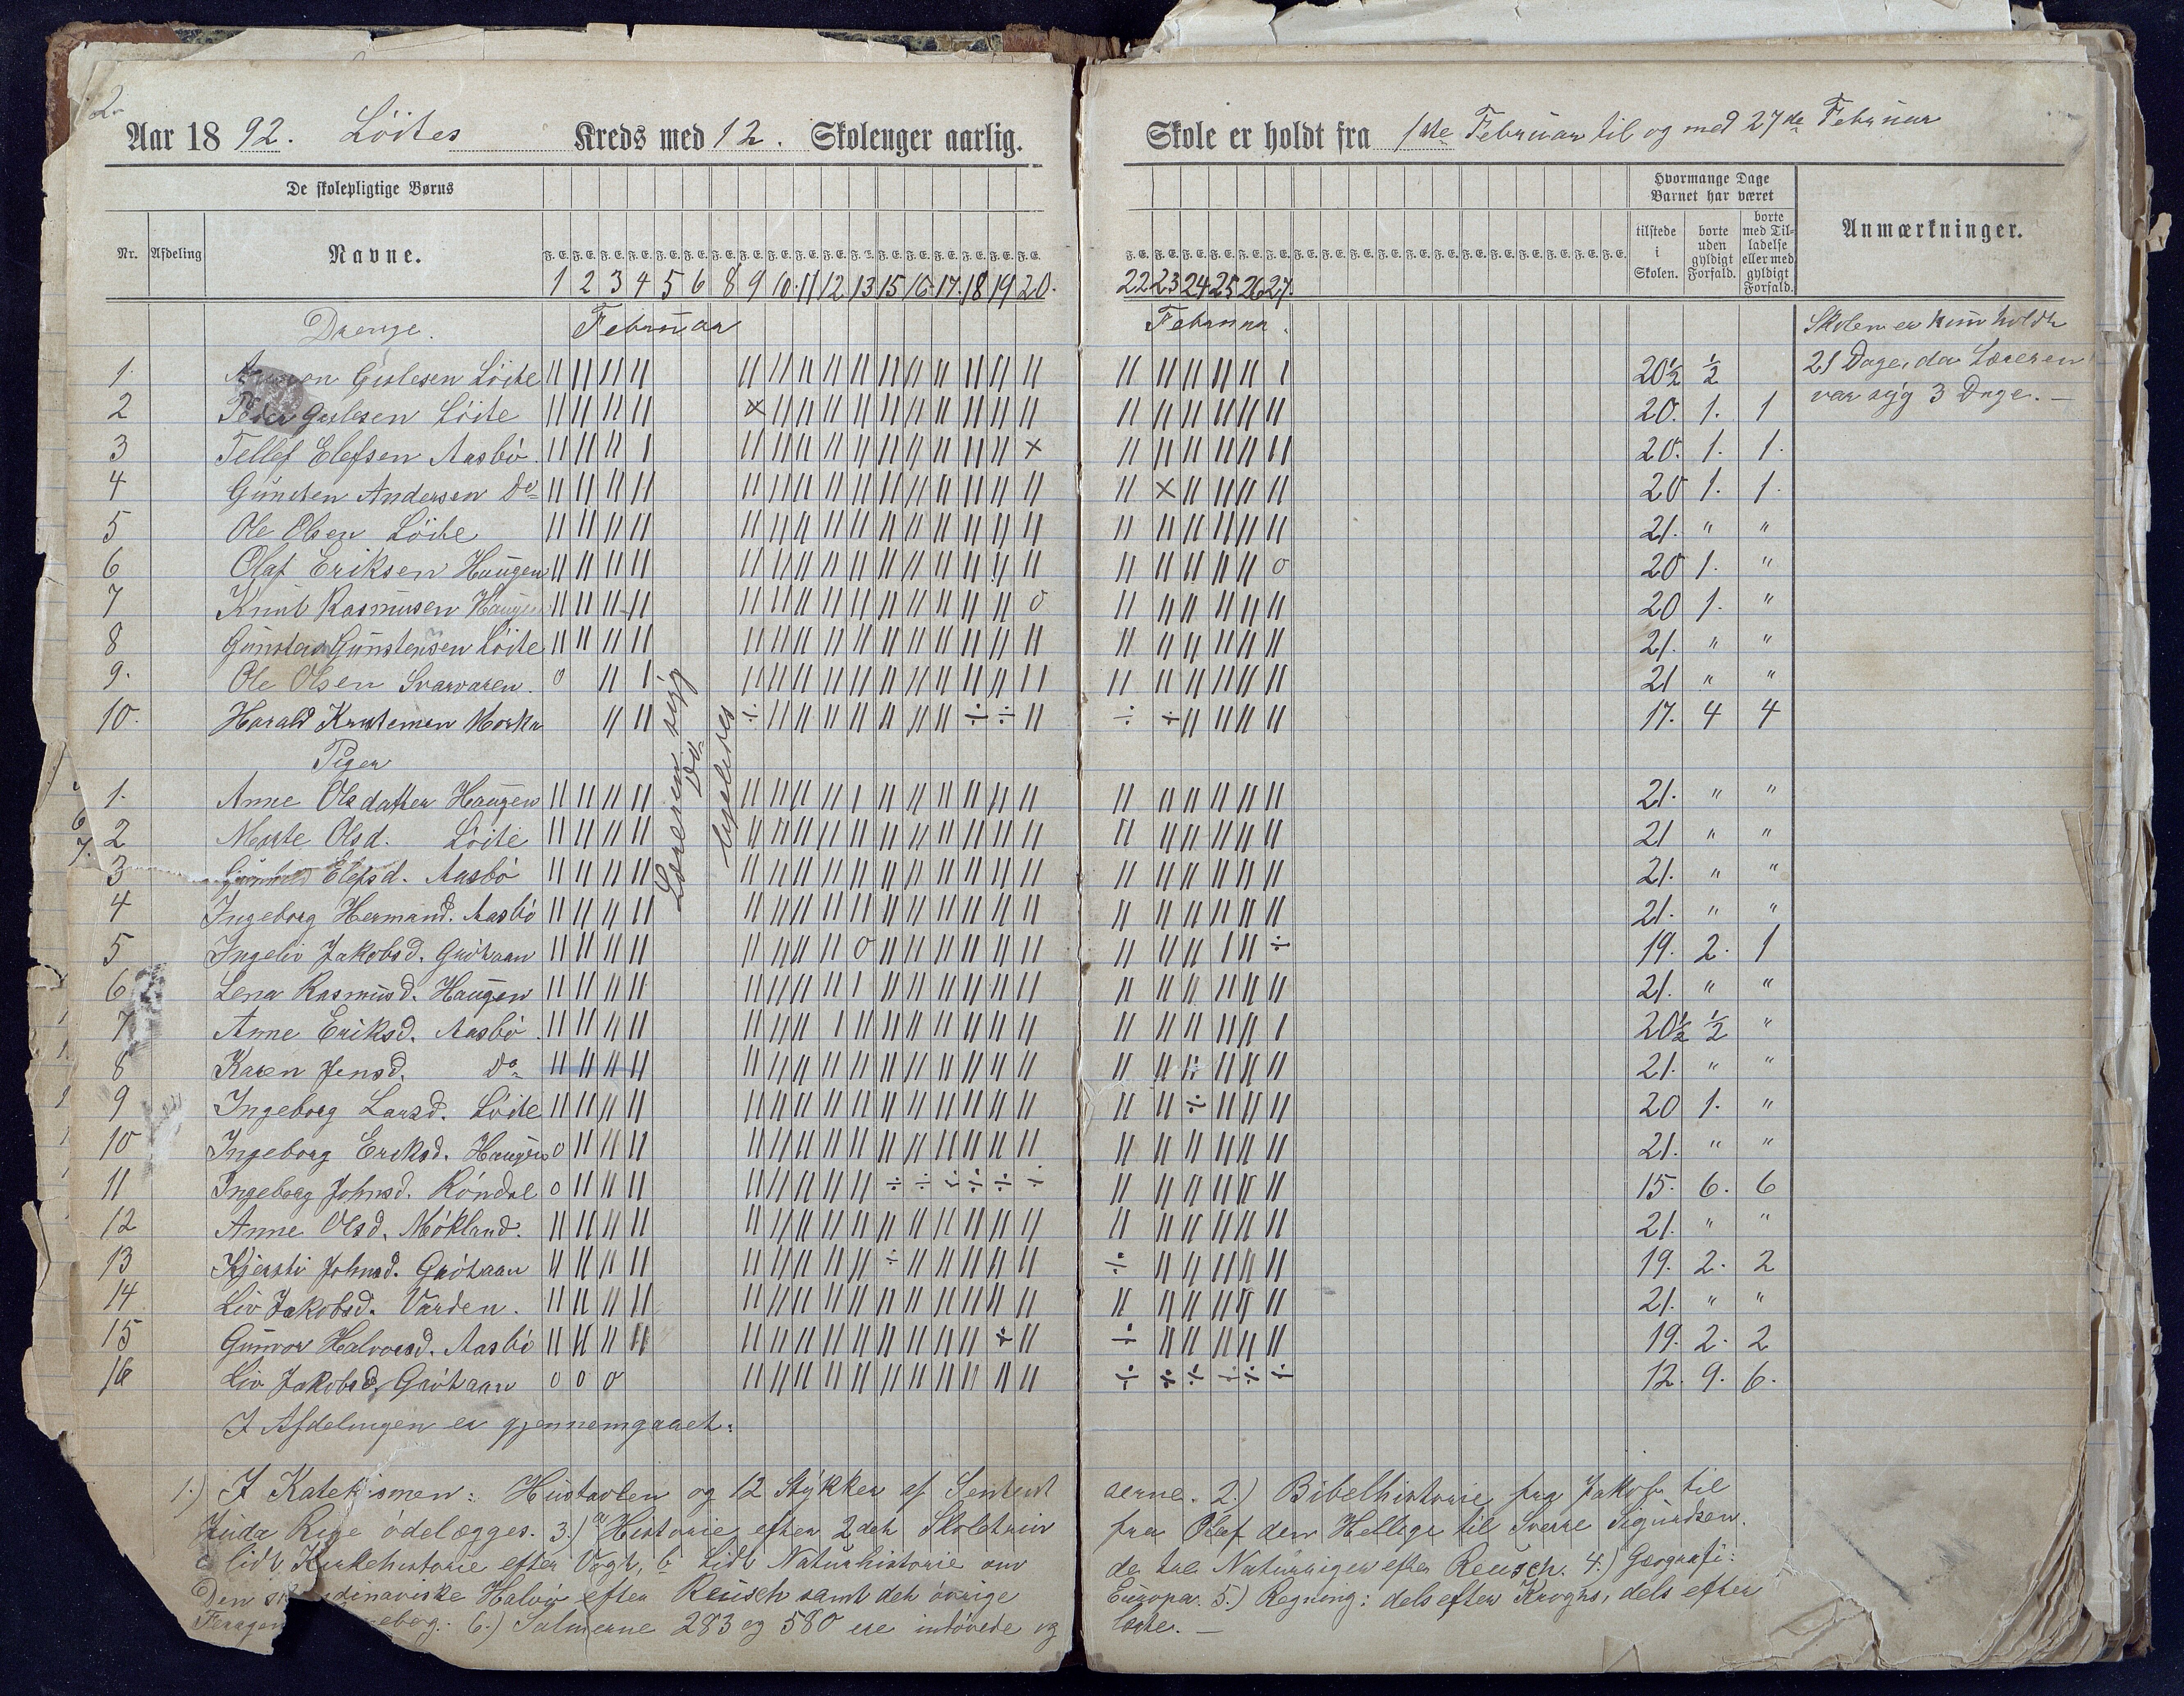 2.
Aar 18 92. Löites Kreds med 12. Skoleuger aarlig. Skole er holdt fra 1ste Februar til og med 27de Februar
De skolepligtige Børns
Hvormange Dage Barnet har været
Nr. Afdeling Navne.
F. E. F. E. F. E. F. E. F. E. F. E. F. E. F. E. F. E. F. E. F. E. F. E. F. E. F. E. F. E. F. E. F. E. F. E.
1 2 3 4 5 6 8 9 10 11 12 13 15 16 17 18 19 20.
22 23 24 25 26 27.
tilstede i Skolen.
borte uden gyldigt Forfald.
borte med Tilladelse eller med gyldigt Forfald.
Anmærkninger.
Drenge. Februar Februar.
Skolen er kun holdt
21 Dage, da Læreren
var syg 3 Dage. —
1. Gislesen Löite 20½ ½
2 Peder Gislesen Löite 20. 1. 1
3 Tellef Elefsen Aasbö. 20. 1. 1.
4 Gunsten Andersen Do 20 1. 1.
5 Ole Olsen Löite 21. " "
6 Olaf Eriksen Haugen 20 1. "
7 Knut Rasmusen Haugen 20 1. "
8 Gunsten Gunstensen Löite 21. " "
9. Ole Olsen Svarvaren. 21 " "
10. Harald 17. 4 4
Læreren syg
Do
ligeledes
Piger
1. Anne Olsdatter Haugen 21. " "
2 Marte Olsd. Löite 21 " "
3 Gunhild Elefsd. Aasbö 21. " "
4 Ingeborg Hermand. Aasbö 21. " "
5 Ingeliv Jakobsd. Gröthaan 19. 2. 1
6 Lena Rasmusd. Haugen 21. " "
7 Anne Eriksd. Aasbö. 20½ ½ "
8 Karen Jensd. Do 21. " "
9 Ingeborg Larsd. Löite 20 1. "
10 Ingeborg Eriksd. Haugen 21. " "
11 Ingeborg Johnsd. Röndal 15. 6. 6
12 Anne Olsd. Mökland. 21. " "
13 Kjersti Johnsd. Gröthaan 19. 2. 2
14 Liv Jakobsd. Varden. 21. " "
15 Gunvor Halvorsd. Aasbö 19. 2. 2
16 Liv Jakobsd. Gröthaan 12. 9. 6.
I Afdelingen er gjennemgaaet:
1.) I Katekismen: Hustavlen og 12 Stykker af Sententserne. 2.) Bibelhistorie fra Jakob til
Juda Rige ödelægges. 3.) a Historie efter 2det Skoletrin fra Olaf den Hellige til Sverre Sigurdsen.
lidt Kirkehistorie efter Vogt, b Lidt Naturhistorie om de tre Naturriger efter Reusch. 4.) Geografi:
Den skandinaviske Halvö efter Reusch samt det övrige Europa. 5.) Regning: dels efter Kroghs, dels efter
6.) Salmerne 283 og 580 ere indövede og